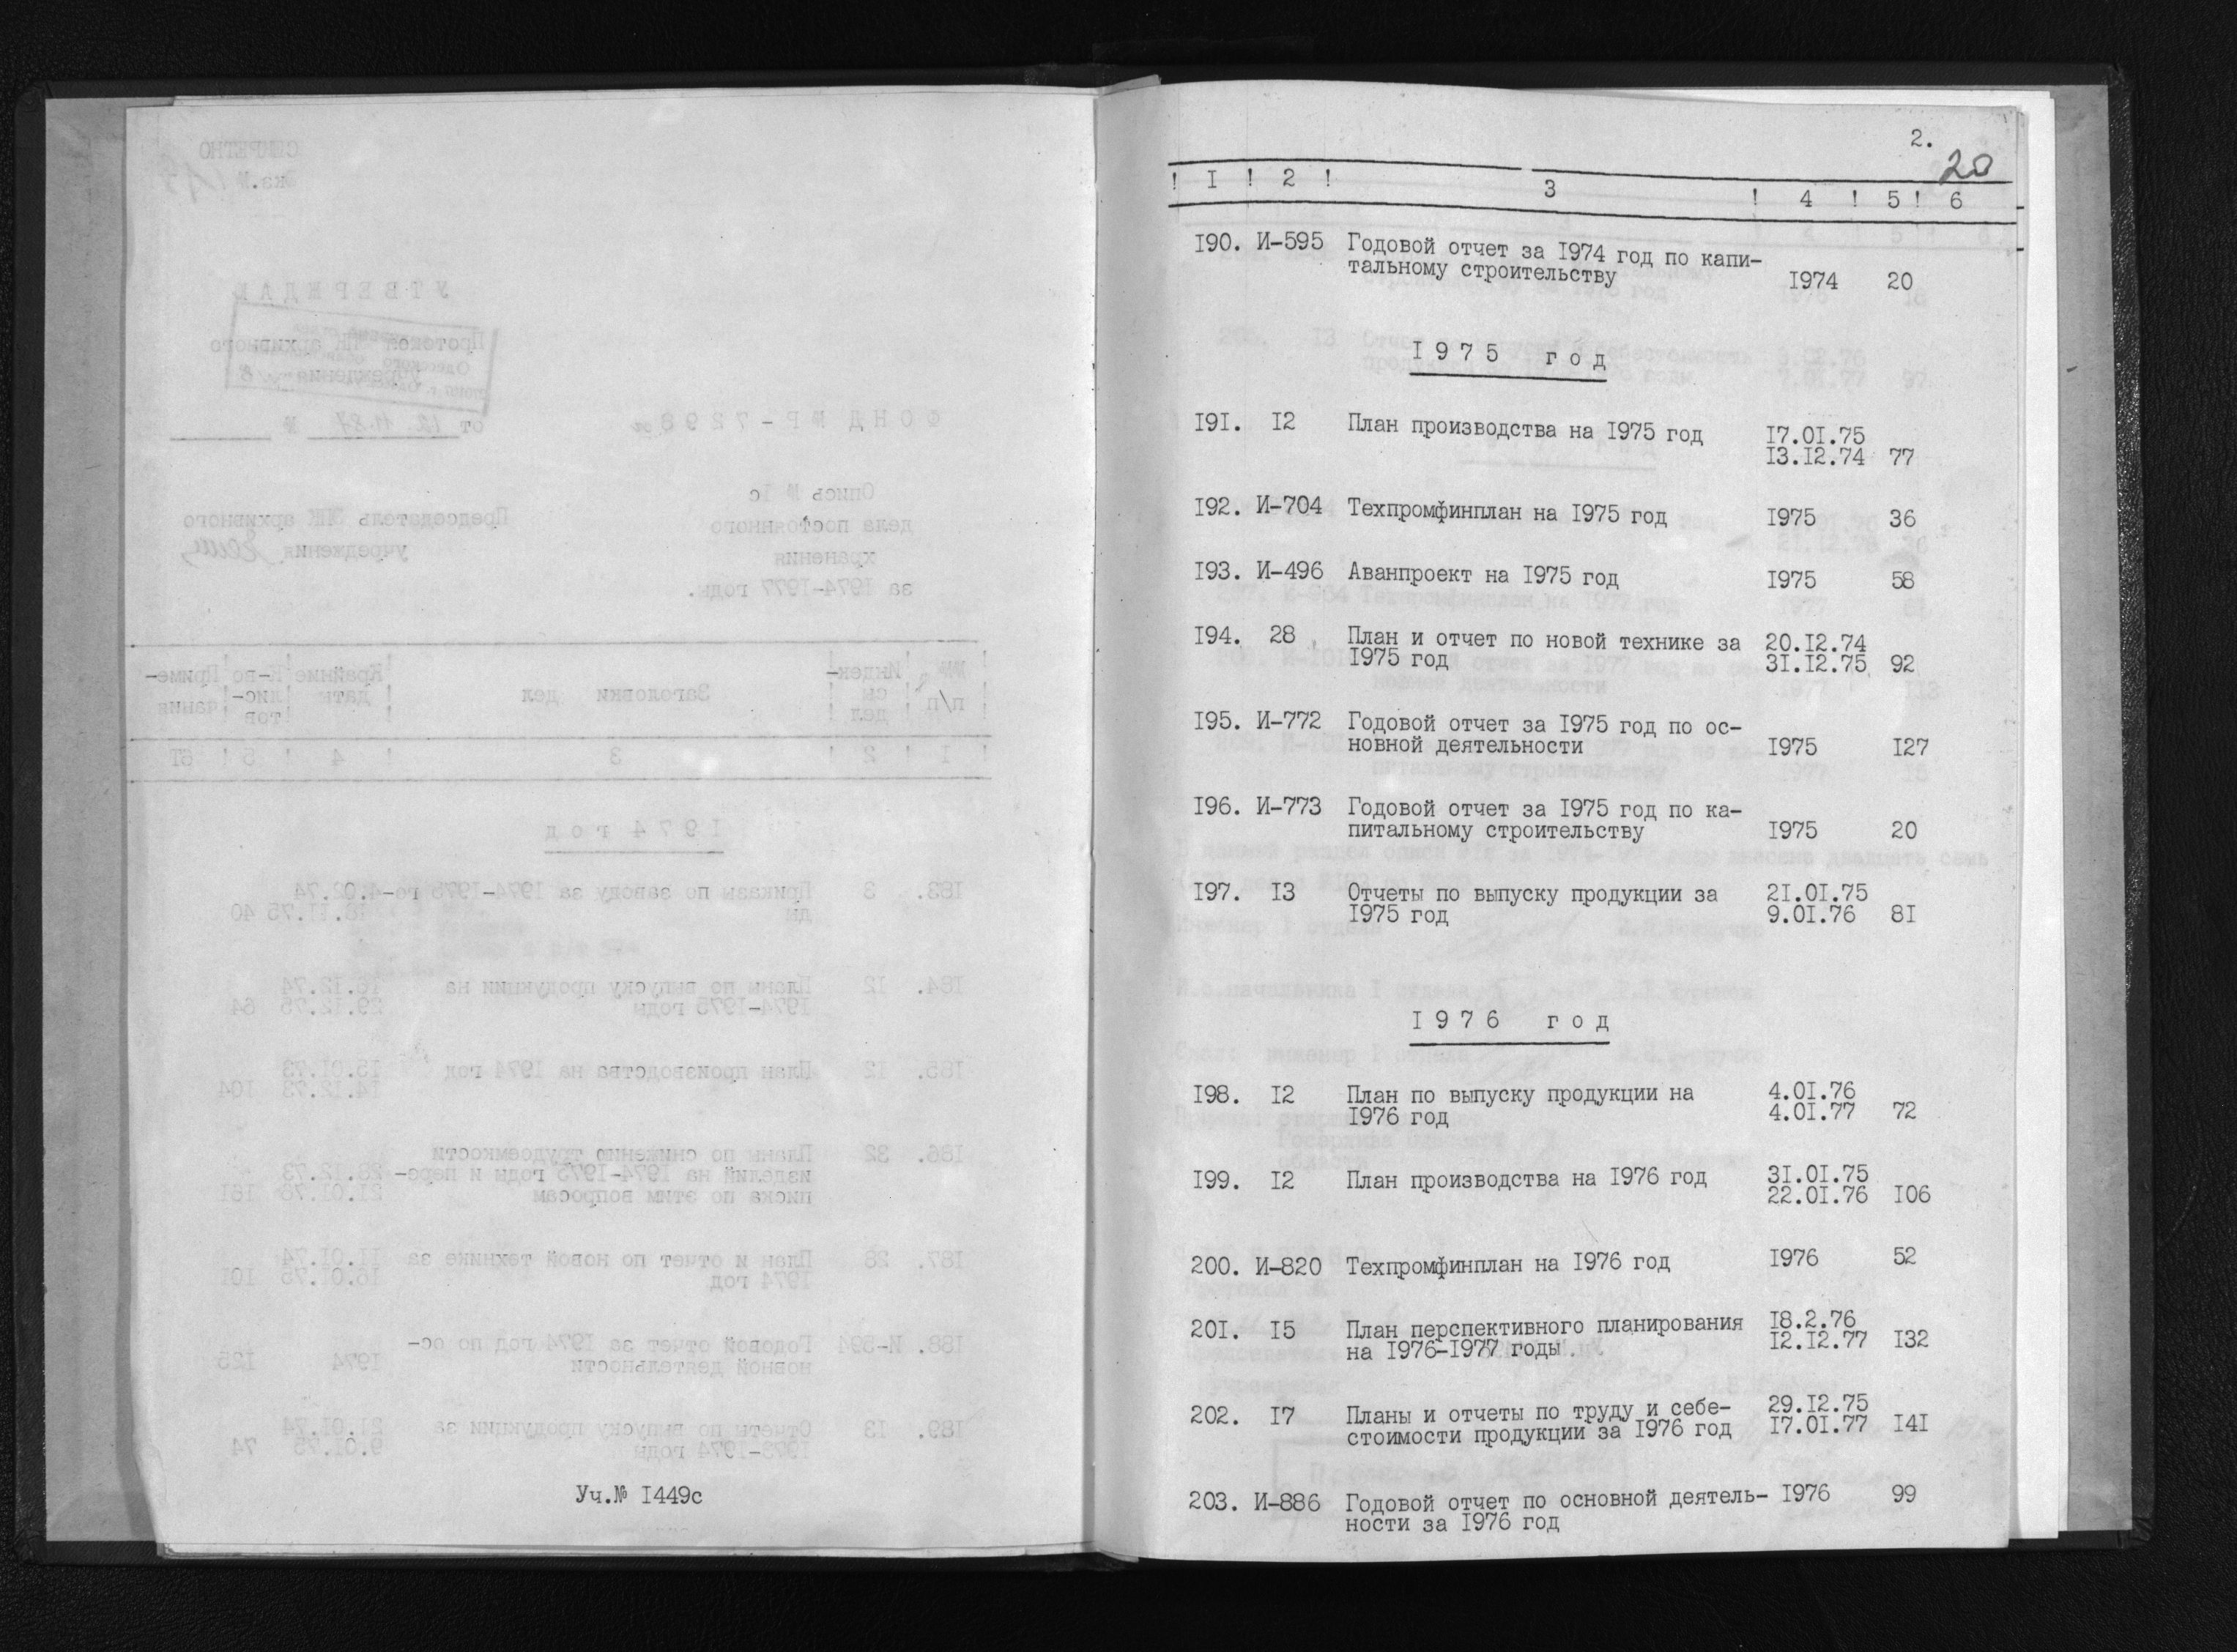 Уч.№ I449с
2.
20
! I ! 2 ! 3 ! 4 ! 5 ! 6
I90. И-595 Годовой отчет за I974 год по капи-
тальному строительству I974 20
I 9 7 5 г о д
I9I. I2 План производства на I975 год I7.0I.75
I3.I2.74 77
I92. И-704 Техпромфинплан на I975 год I975 36
I93. И-496 Аванпроект на I975 год I975 58
I94. 28 План и отчет по новой технике за 20.I2.74
I975 год 3I.I2.75 92
I95. И-772 Годовой отчет за I975 год по ос-
новной деятельности I975 I27
I96. И-773 Годовой отчет за I975 год по ка-
питальному строительству I975 20
I97. I3 Отчеты по выпуску продукции за 2I.0I.75
I975 год 9.0I.76 8I
I 9 7 6 г о д
I98. I2 План по выпуску продукции на 4.0I.76
I976 год 4.0I.77 72
I99. I2 План производства на I976 год 3I.0I.75
22.0I.76 I06
200. И-820 Техпромфинплан на I976 год I976 52
20I. I5 План перспективного планирования I8.2.76
на I976-I977 годы I2.I2.77 I32
202. I7 Планы и отчеты по труду и себе- 29.I2.75
стоимости продукции за I976 год I7.0I.77 I4I
203. И-886 Годовой отчет по основной деятель- I976 99
ности за I976 год